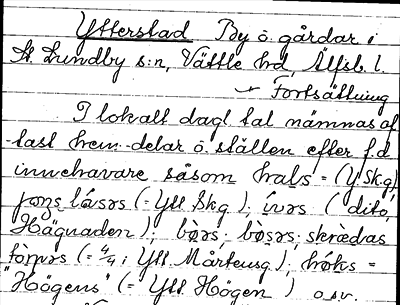 Ytterstad By o. gårdar i
St. Lundby s:n, Vättle hd, Älfsb. l.
Fortsättning
I lokalt dagl. tal nämnas of-
tast hem-delar o. ställen efter f.d.
innehavare såsom hals = (Y Skg),
(= Ytt Skg); ivərs (dito,
Hägnaden); bərs; bòsərs; skrædas
(= 4/9 i Ytt. Mårtensg); høks =
"Högens" (= Ytt Högen) o.s.v.